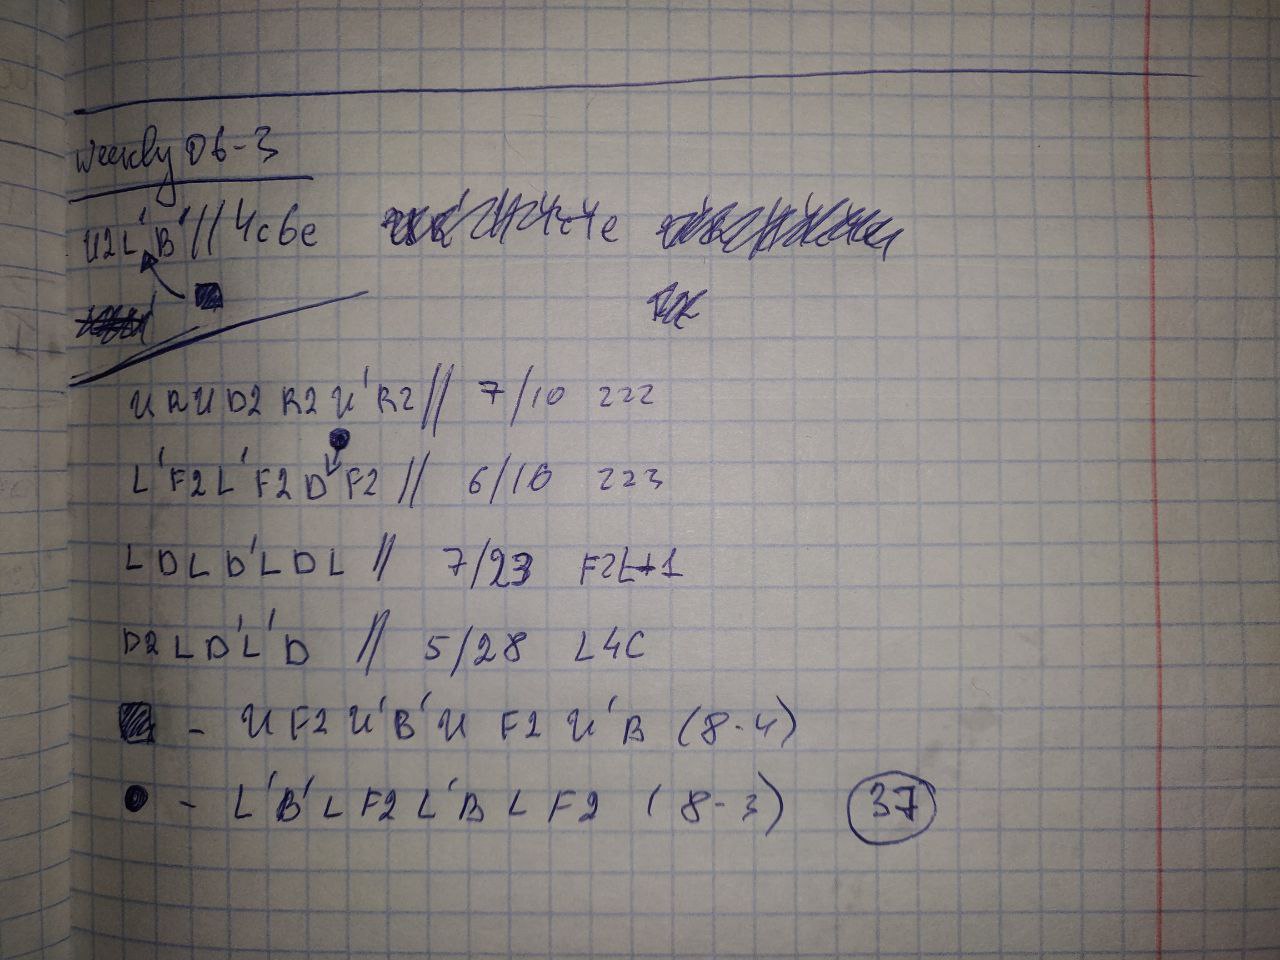 Weekly 06-3
U2 L' B' // 4c6e
U R U D2 R2 U' R2 // 7/10 222
L' F2 L' F2 D' F2 // 6/16 223
L D L D' L D L // 7/23 F2L+1
D2 L D' L' D // 5/28 L4C
■ - U F2 U' B' U F2 U' B (8-4)
● - L' B' L F2 L' B L F2 (8-3) 37